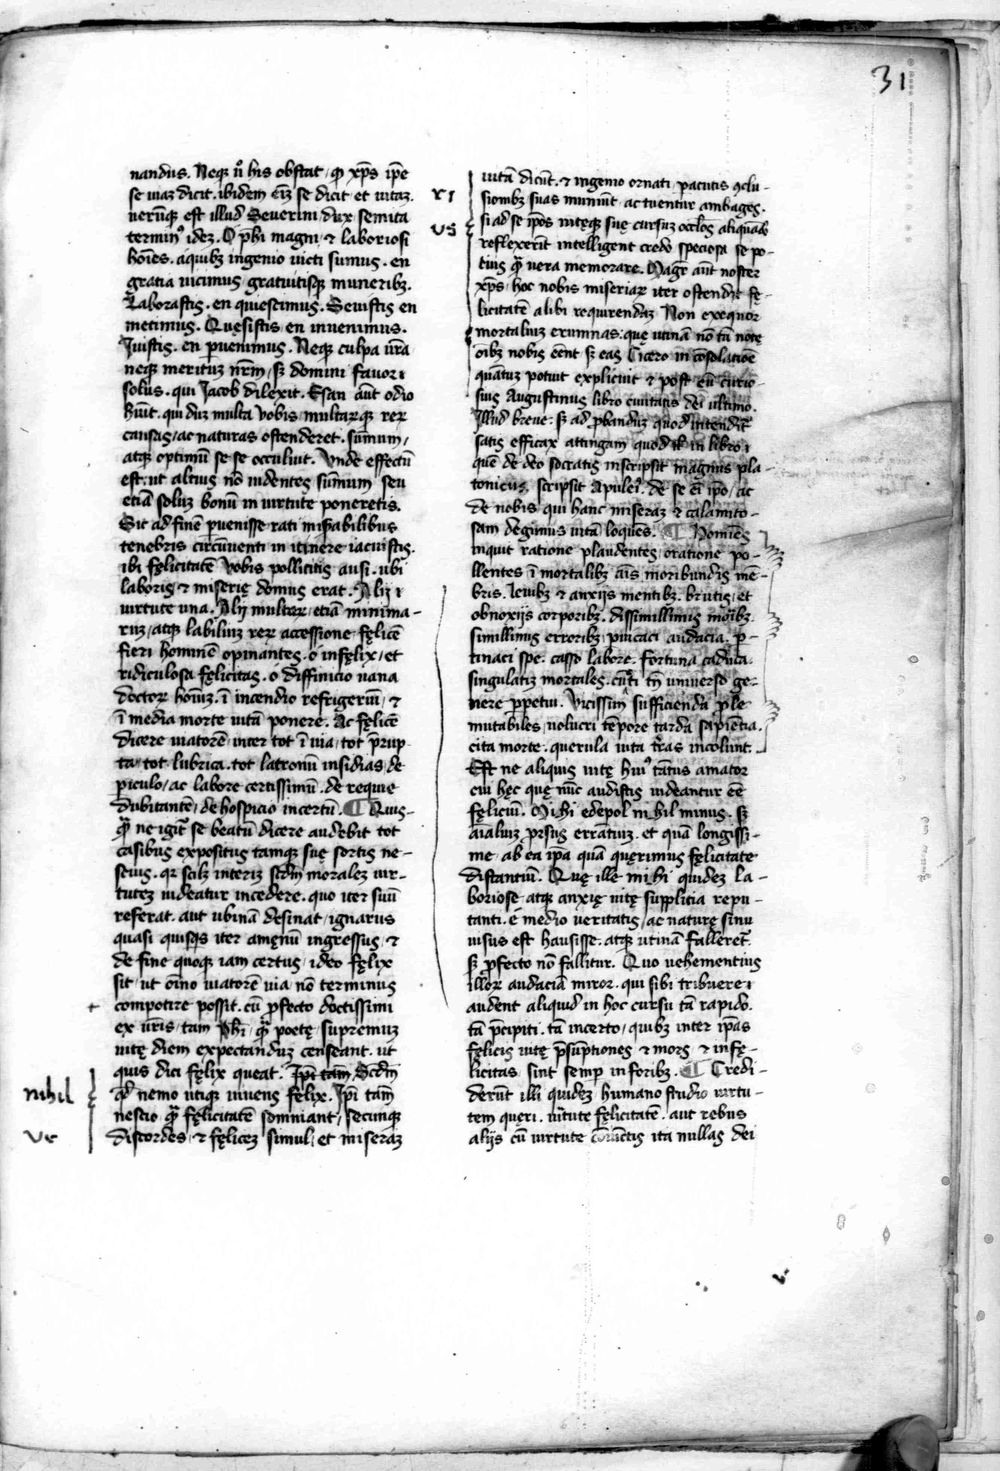 31
nandus. Neqꝫ n̄ his obstat, ꝙ xp̄s ip̄e
se uiaꝫ dicit. ibidem eīꝫ se dicit et uitaꝫ.
uerūqꝫ est illud Seuerini dux semita
termin᷒ ideꝫ. O ph̄i magni ⁊ laboriosi
hoīes. aquibꝫ ingenio uicti sumus. en
gratia uicimus gratuitisqꝫ muneribꝫ.
Laborastis. en quiescimus. Seuistis en
metimus. Quęsistis en inuenimus.
Iuistis. en ꝑuenimus. Neqꝫ culpa ur̄a
neqꝫ merituꝫ nr̄m, sꝫ domini fauor ⁊
solus. qui Jacob dilexit. Esau aūt odio
h̄uit. qui duꝫ multa uobis multarqꝫ reꝝ
causas, ac naturas ostenderet. sūmum,
atqꝫ optimū se se occuluit. Unde effectū
est. ut altius nō uidentes sūmum seu
etiā soluꝫ bonū in uirtute poneretis.
Sic ad finē ꝑuenisse rati mirabilibus
tenebris circūuenti in itinere iacuistis.
ibi fęlicitatē uobis polliciti ausi. ubi
laboris ⁊ miserię domus erat. Alij ⁊
uirtute una. Alij multaꝝ, etiā minima-
ruꝫ, atqꝫ labiliuꝫ reꝝ accessione fęlicē
fieri hominē opinantes. o infęlix, et
ridiculosa fęlicitas. o diffinicio uana
doctoꝝ hom̄ꝫ. ī incendio refrigeriū, ⁊
ī media morte uitā ponere. Ac fęlicē
dicere uiatorē, inter tot ī uia, tot p̄rup-
ta, tot lubrica. tot latronū insidias, de
ꝑiculo, ac labore certissimū. de requie
dubitantē, de hospicio incertū. ¶ Quis-
ꝙ̄ ne igit̄ se beatū dicere audebit tot
casibus expositus tamqꝫ suę sortis ne-
scius. qꝛ sc̄lꝫ interiꝫ scd̄m moraleꝫ uir-
tuteꝫ uideatur incedere. quo iter suū
referat. aut ubinā desinat, ignarus
quasi quisꝗs iter amęnū ingressus, ⁊
de fine quoqꝫ iam certus, ideo fęlix
sit, ut oīno uiatorē uia nō terminus
compotire possit. cū ꝓfecto doctissimi
ex ur̄is, tam ph̄i, ꝙ̄ poetę, supremuꝫ
uitę diem expectanduꝫ censeant. ut
quis dici fęlix queat. Ip̄i tam̄ Scd̄m
qd̄ nemo utiqꝫ uiuens fęlix. Ip̄i tam̄
nescio ꝙ̄ fęlicitatē somniant, secunqꝫ
discordes, ⁊ fęliceꝫ simul, et miseraꝫ
nihil
ur
+
xi
us
uitā dicūt. ⁊ ingenio ornati, pacutis ꝯclu-
siombꝫ suas muniūt, ac tuentur ambages.
si ad se ip̄os uitęqꝫ suę cursuꝫ occl̄os aliquādo
reflexerīt intelligent credo speciosa se po-
tius ꝙ̄ uera memorare. Magr̄ aūt noster
xp̄s, hoc nobis miseriaꝝ iter ostendit fę-
licitatē alibi requirendaꝫ Non exequor
mortaliuꝫ erumnas. quę utinā nō tā notę
oībꝫ nobis eēnt sꝫ eas Cicero in cōsolatiōe
quātuꝫ potuit explicuit ⁊ post eū curio-
sius Augustinus libro ciuitatis dei ultimo.
Illud breue: sꝫ ad ꝓbanduꝫ quod intendit̄
satis efficax attingam quod in libro ⁊
quē de deo socratis inscripsit magnus pla-
tonicus, scripsit Apulei᷒. de se eī ip̄o, ac
de nobis qui hanc miseraꝫ ⁊ calamito-
sam degimus uitā loquēs. ¶ Homīes
inquit ratione plaudentes, oratione po-
llentes ī mortalibꝫ aīs moribundis mē-
bris. leuibꝫ ⁊ anxijs mentibꝫ. brutis, et
obnoxijs corporibꝫ. dissimillimis moribꝫ.
simillimis erroribꝫ, ꝑuicaci audacia. ꝑ-
tinaci spe. casso labore. fortuna caduca.
singulatiꝫ mortales. cūcti tn̄ uniuerso ge-
nere ꝑpetui. Vicissim sufficienda ꝓle
mutabiles, uolucri tēpore tarda sapiētia.
cita morte. querula uita t̄ras incolunt.
Est ne aliquis uitę hui᷒ tātus amator
cui hęc quę nūc audistis uideantur eē
fęliciū. Mihi edepol nihil minus. sꝫ
aīaliuꝫ ꝓrsus erratiuꝫ. et quā longissi-
me ab ea ip̄a quā quęrimus fęlicitate
distantiū. Quę ille mihi quideꝫ la-
boriose atqꝫ anxię uitę supplitia repu-
tanti. e medio ueritatis, ac naturę sinu
uisus est hausisse. atqꝫ utinā falleret̄.
sꝫ ꝓfecto nō fallitur. Quo uehementius
illoꝝ audaciā miror. qui sibi tribuere ⁊
audent aliquid in hoc cursu tā rapido.
tā p̄cipiti. tā incerto, quibꝫ inter ip̄as
fęlicis uitę p̄suptiones ⁊ mors ⁊ infę-
licitas sint semꝑ in foribꝫ. ¶ Credi-
derūt illi quideꝫ humano studio uirtu-
tem quęri. uirtute fęlicitatē. aut rebus
alijs cū uirtute cōiūctis ita nullas dei